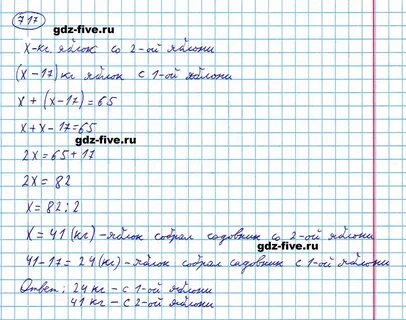 717
gdz-five.ru
x-кг яблок со 2-ой яблони
(x-17) кг яблок с 1-ой яблони
x + (x-17) = 65
x + x - 17 = 65
gdz-five.ru
2x = 65 + 17
2x = 82
x = 82 : 2
x = 41 (кг) - яблок собрал садовник со 2-ой яблони
gdz-five.ru
41-17 = 24 (кг) - яблок собрал садовник с 1-ой яблони
Ответ: 24 кг - с 1-ой яблони
41 кг - с 2-ой яблони
gdz-five.ru